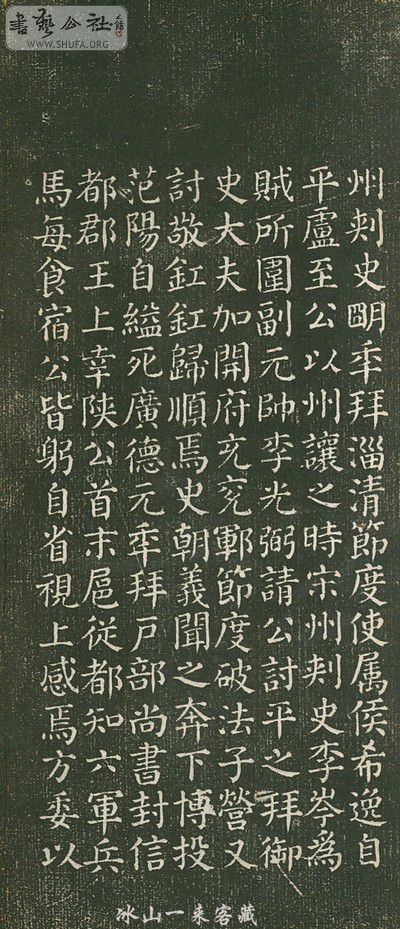 書藝公社
WWW.SHUFA.ORG
州刾史明年拜淄清節度使属侯希逸自
平盧至公以州讓之時宋州刾史李岑為
賊所圍副元帥李光弼請公討平之拜御
史大夫加開府充兖鄆節度破法子營又
討敬釭釭歸順焉史朝義聞之奔下博投
范陽自縊死廣德元年拜戶部尚書封信
都郡王上幸陝公首末扈從都知六軍兵
馬每食宿公皆躬自省視上感焉方委以
冰山一来客藏